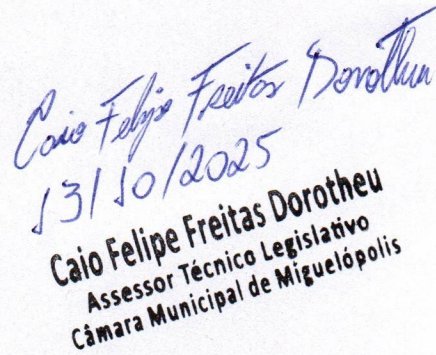 Caio Felipe Freitas Dorotheu
13/10/2025
Caio Felipe Freitas Dorotheu
Assessor Técnico Legislativo
Câmara Municipal de Miguelópolis